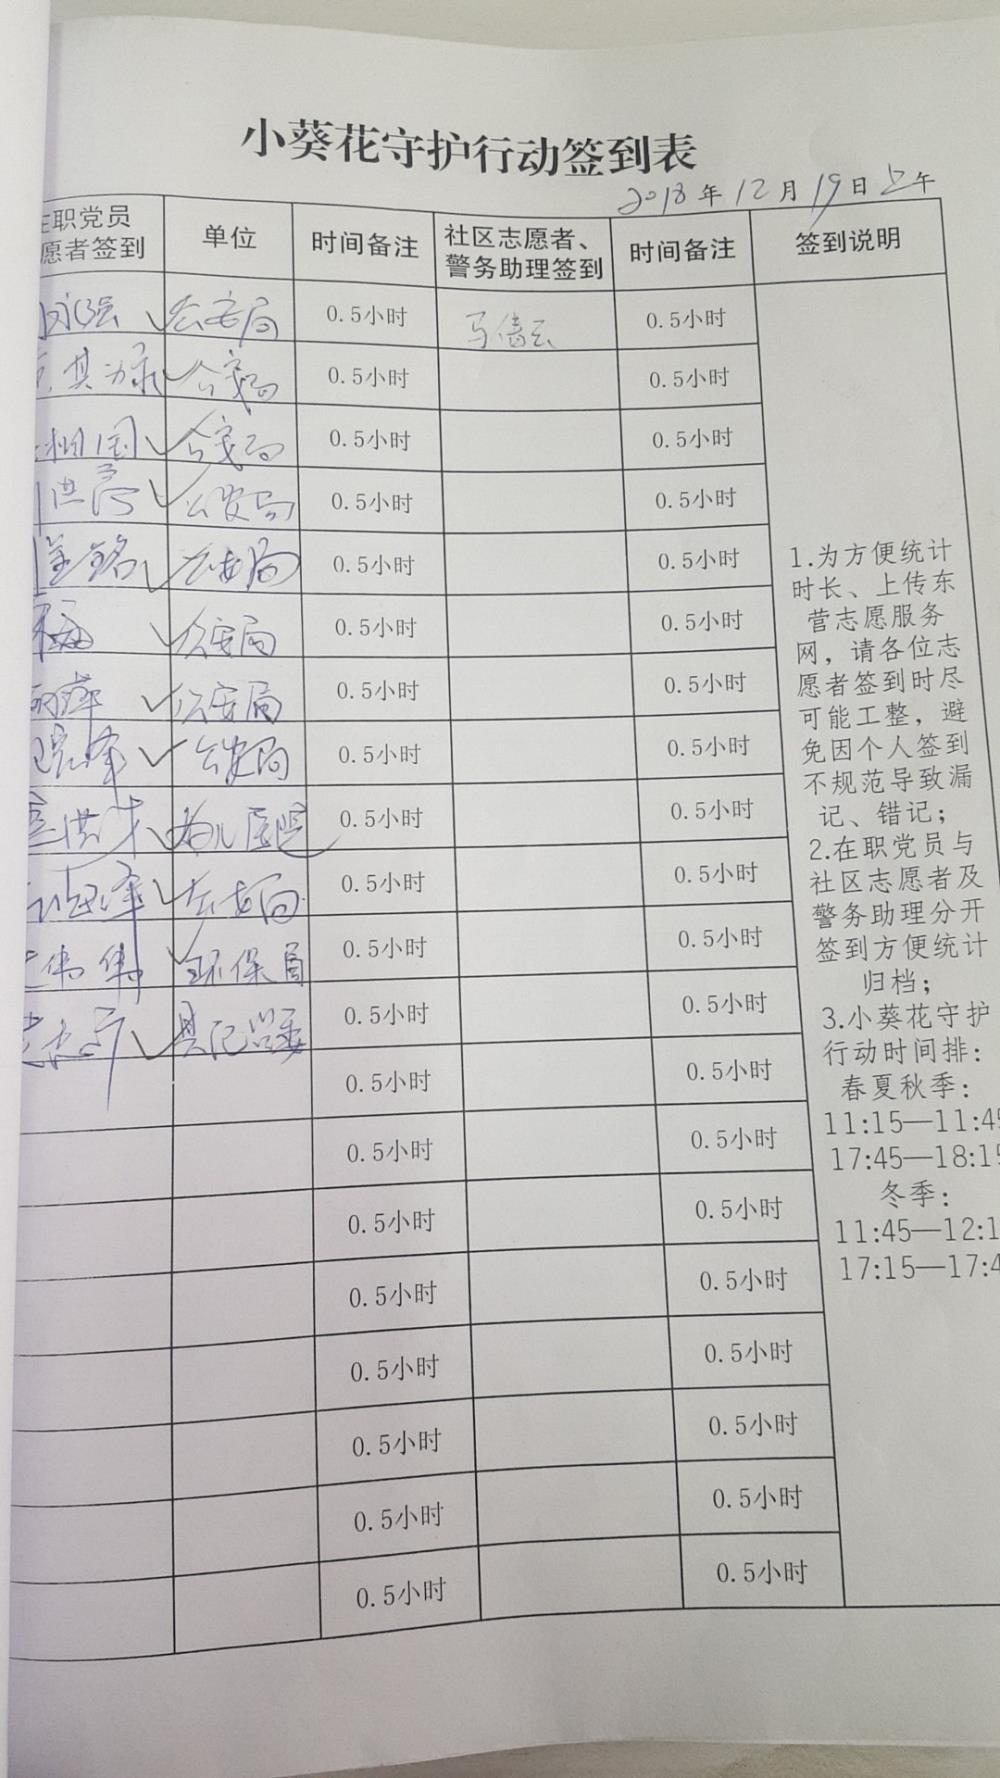 小葵花守护行动签到表
2018年12月19日上午
在职党员
愿者签到
单位
时间备注
社区志愿者、
警务助理签到
时间备注
签到说明
永强 公安局 0.5小时 马倩云 0.5小时
其禄 公安局 0.5小时 0.5小时
相国 公安局 0.5小时 0.5小时
洪亮 公安局 0.5小时 0.5小时
公安局 0.5小时 0.5小时
公安局 0.5小时 0.5小时
丽萍 公安局 0.5小时 0.5小时
公安局 0.5小时 0.5小时
妇儿医院 0.5小时 0.5小时
公安局 0.5小时 0.5小时
环保局 0.5小时 0.5小时
县纪监委 0.5小时 0.5小时
0.5小时 0.5小时
0.5小时 0.5小时
0.5小时 0.5小时
0.5小时 0.5小时
0.5小时 0.5小时
0.5小时 0.5小时
0.5小时 0.5小时
0.5小时 0.5小时
1.为方便统计
时长、上传东
营志愿服务
网，请各位志
愿者签到时尽
可能工整，避
免因个人签到
不规范导致漏
记、错记；
2.在职党员与
社区志愿者及
警务助理分开
签到方便统计
归档；
3.小葵花守护
行动时间排：
春夏秋季：
11:15—11:45
17:45—18:15
冬季：
11:45—12:1
17:15—17:4